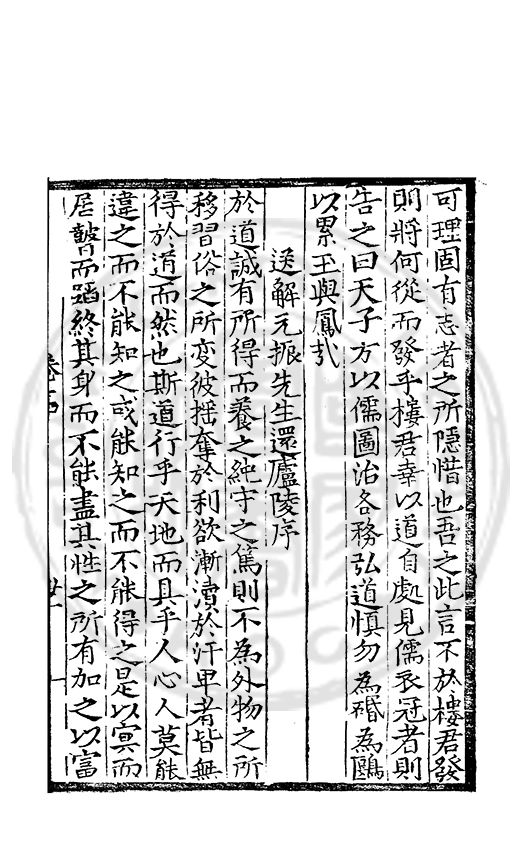 可理固有志者之所隱惜也吾之此言不於樓君發
則將何從而發乎樓君幸以道自處見儒衣冠者則
告之曰天子方以儒圖治各務弘道慎勿為磖為鷗
以累王與鳳於
送解元振先生還廬陵序
於道誠有所得而養之純守之篤則不為外物之所
移習俗之所変彼揺奪於利欲漸瀆於汙卑者皆無
得於道而然也斯道行乎天地而具乎人心人莫能
違之而不能知之或能知之而不能得之是以冥而
居瞽而蹈終其身而不能盡其性之所有加之以富